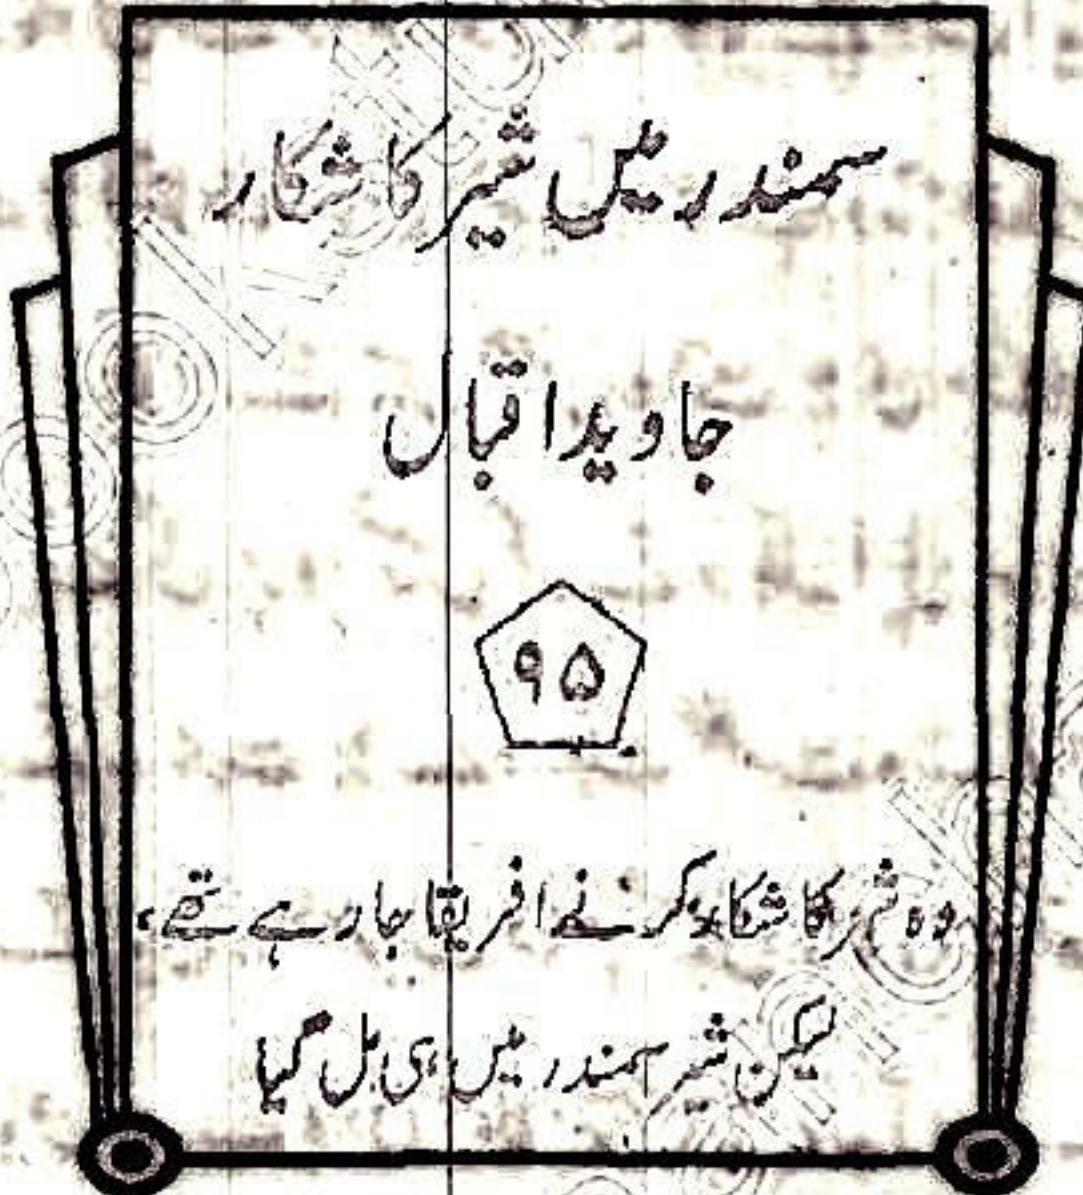 سمندر میں شیر کا شکار
جاوید اقبال
۹۵
وہ شیر کا شکار کرنے افریقا جا رہے تھے،
لیکن شیر سمندر میں ہی مل گیا